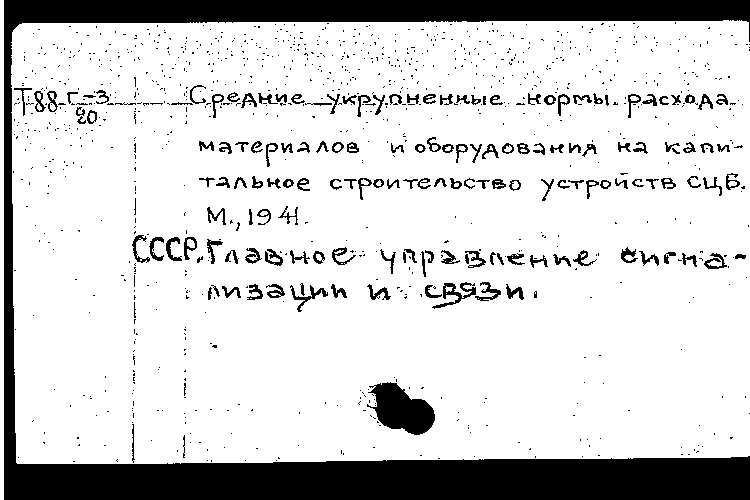 Т88 Г-3 Средние укрупненные нормы расхода
20
материалов и оборудования на капи-
тальное строительство устройств СЦБ.
М., 1941.
СССР. Главное управление сигна-
лизации и связи.